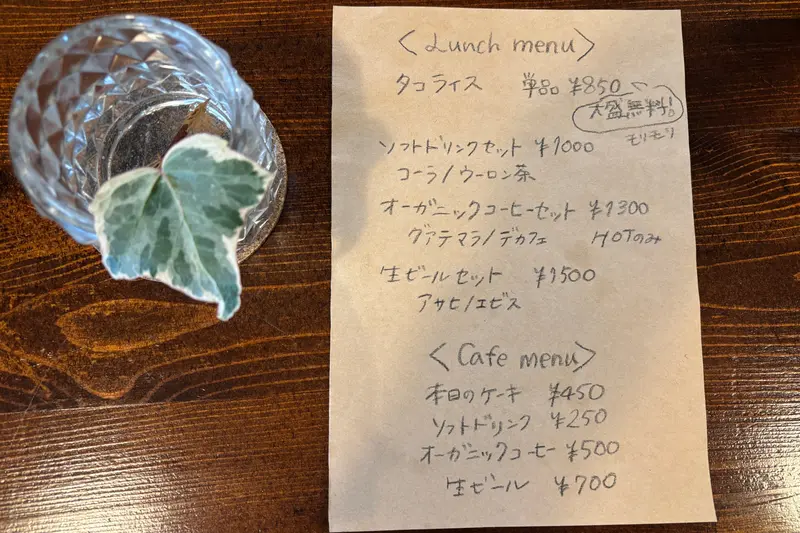 〈Lunch menu〉
タコライス 単品 ¥850
大盛無料!
モリモリ
ソフトドリンクセット ¥1000
コーラ/ウーロン茶
オーガニックコーヒーセット ¥1300
グアテマラ/デカフェ HOTのみ
生ビールセット ¥1500
アサヒ/エビス
〈Cafe menu〉
本日のケーキ ¥450
ソフトドリンク ¥250
オーガニックコーヒー ¥500
生ビール ¥700